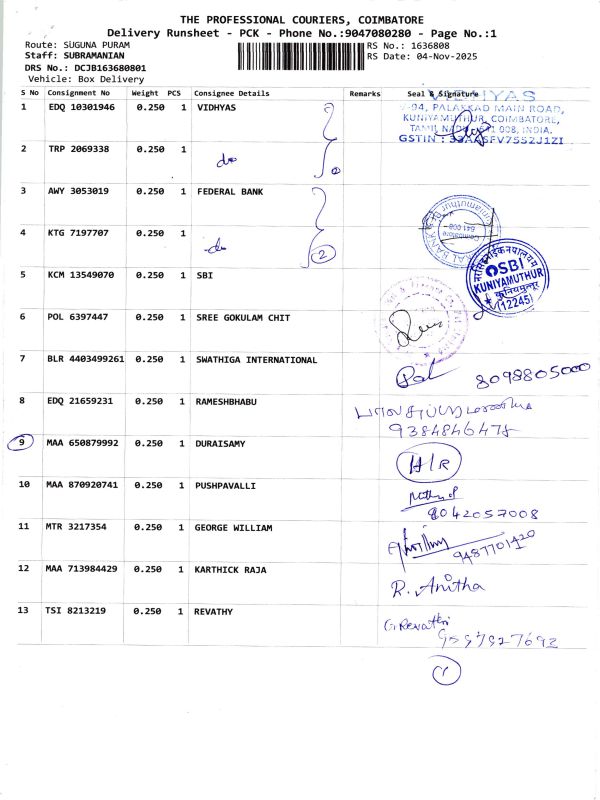 THE PROFESSIONAL COURIERS, COIMBATORE
Delivery Runsheet - PCK - Phone No.:9047080280 - Page No.:1
Route: SUGUNA PURAM
RS No.: 1636808
Staff: SUBRAMANIAN
RS Date: 04-Nov-2025
DRS No.: DCJB163680801
Vehicle: Box Delivery
S No Consignment No Weight PCS Consignee Details Remarks Seal & Signature
1 EDQ 10301946 0.250 1 VIDHYAS
94, PALAKKAD MAIN ROAD,
KUNIYAMUTHUR, COIMBATORE,
TAMIL NADU 641 008, INDIA.
2 TRP 2069338 0.250 1 do
2
3 AWY 3053019 0.250 1 FEDERAL BANK
Kuniyamuthur
Coimbatore
641 008
4 KTG 7197707 0.250 1 do
2
5 KCM 13549070 0.250 1 SBI
SBI
KUNIYAMUTHUR
(12245)
6 POL 6397447 0.250 1 SREE GOKULAM CHIT
7 BLR 4403499261 0.250 1 SWATHIGA INTERNATIONAL
8098805000
8 EDQ 21659231 0.250 1 RAMESHBHABU
9384846478
9 MAA 650879992 0.250 1 DURAISAMY H/R
10 MAA 870920741 0.250 1 PUSHPAVALLI
8042057008
11 MTR 3217354 0.250 1 GEORGE WILLIAM
9487701420
12 MAA 713984429 0.250 1 KARTHICK RAJA R. Anitha
13 TSI 8213219 0.250 1 REVATHY G Revathi
1